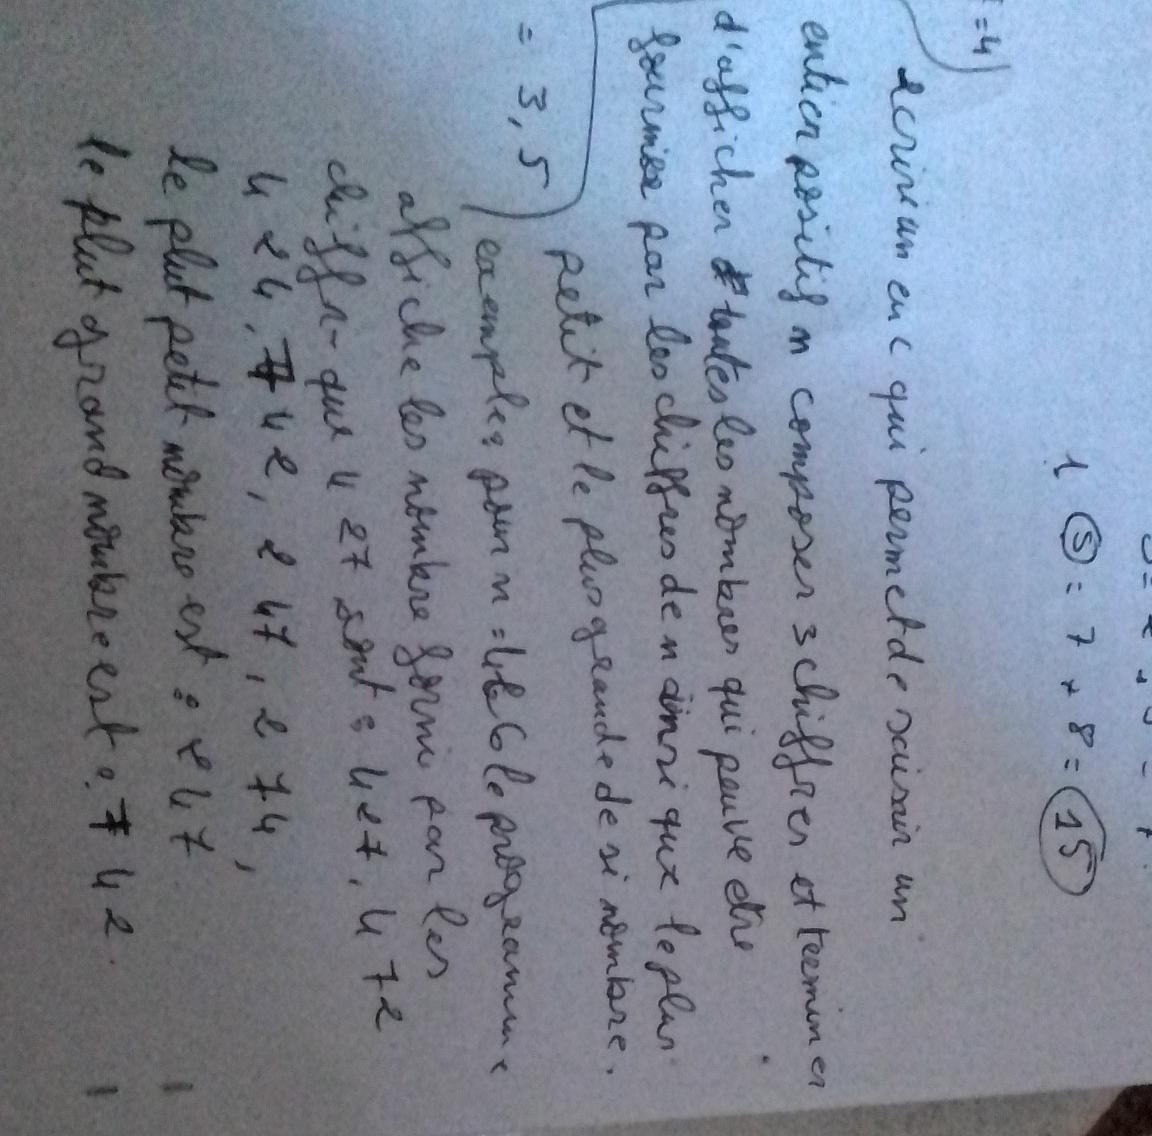 1 S = 7 + 8 = 15
= 4
ecrire un en c qui permet de saisair un
entier positif n composer 3 chiffres et terminer
d'afficher toutes les nombres qui peuve etre
fournise par les chiffres de n ainsi que le plus
petit et le plus grande de si nombre.
= 3,5
exemple: pour n = le programme
affiche les nombre formi par les
chiffr- que 427 sont : 427, 472
424, 742, 247, 274,
le plut petit nombre est : 247
le plut grand nombre est : 742.